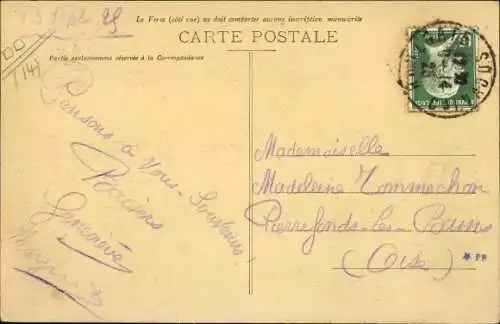 Le Verso (côté vue) ne doit comporter aucune inscription manuscrite
CARTE POSTALE
Partie exclusivement réservée à la Correspondance
(14)
Pensons à Vous - Souvenirs!
Baisers
Geneviève
Mademoiselle
Madeleine Tommechon
Pierrefonds-les-Bains
(Oise)
* PP